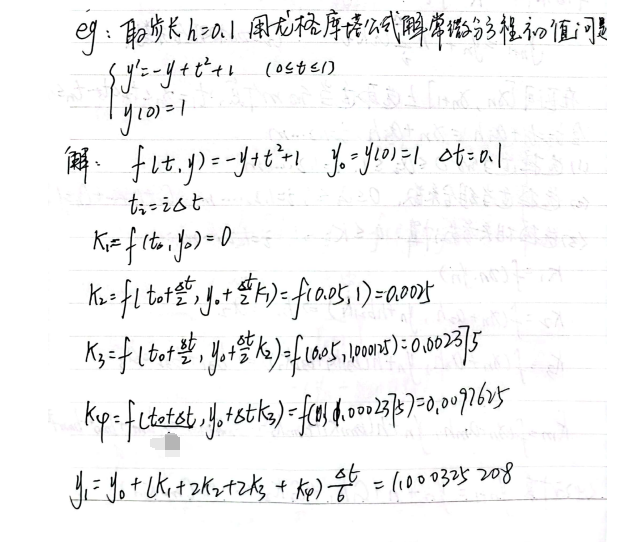 eg: 取步长 h=0.1 用龙格库塔公式解常微分方程初值问题
{ y'=-y+t²+1 (0≤t≤1)
y(0)=1
解: f(t,y)=-y+t²+1 y₀=y(0)=1 Δt=0.1
tᵢ=iΔt
K₁=f(t₀,y₀)=0
K₂=f(t₀+Δt/2, y₀+Δt/2 K₁)=f(0.05,1)=0.0025
K₃=f(t₀+Δt/2, y₀+Δt/2 K₂)=f(0.05,1.000125)=0.002375
K₄=f(t₀+Δt, y₀+ΔtK₃)=f(0.1,1.0002375)=0.0097625
y₁=y₀+(K₁+2K₂+2K₃+K₄)Δt/6=1.000325208